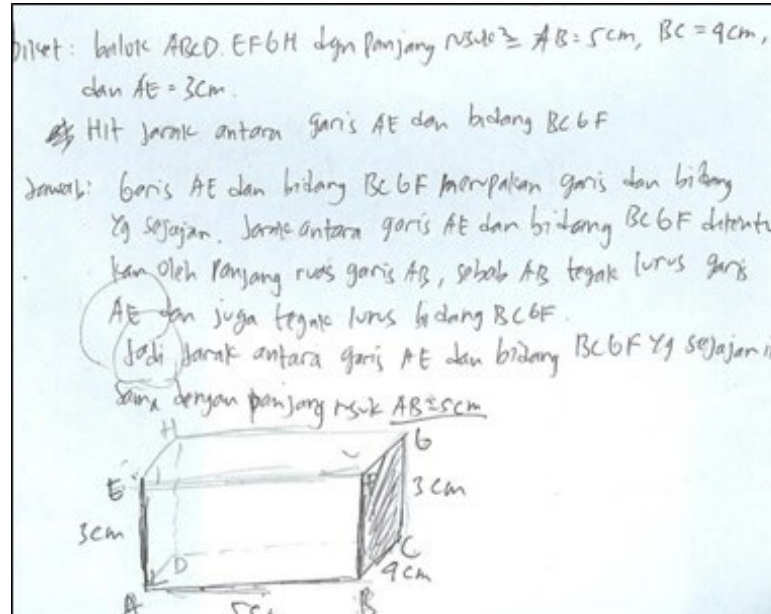 Diket: balok ABCD.EFGH dgn panjang rusuk² = AB = 5cm, BC = 4cm,
dan AE = 3cm.
Hit Jarak antara garis AE dan bidang BCGF
Jawab: Garis AE dan bidang BCGF merupakan garis dan bidang
Yg sejajar. Jarak antara garis AE dan bidang BCGF ditentu
kan oleh panjang ruas garis AB, sebab AB tegak lurus garis
AE dan juga tegak lurus bidang BCGF.
Jadi Jarak antara garis AE dan bidang BCGF Yg sejajar
sama dengan panjang rusuk AB = 5cm
H
G
E
F
3cm
3cm
D
C
4cm
A
5cm
B